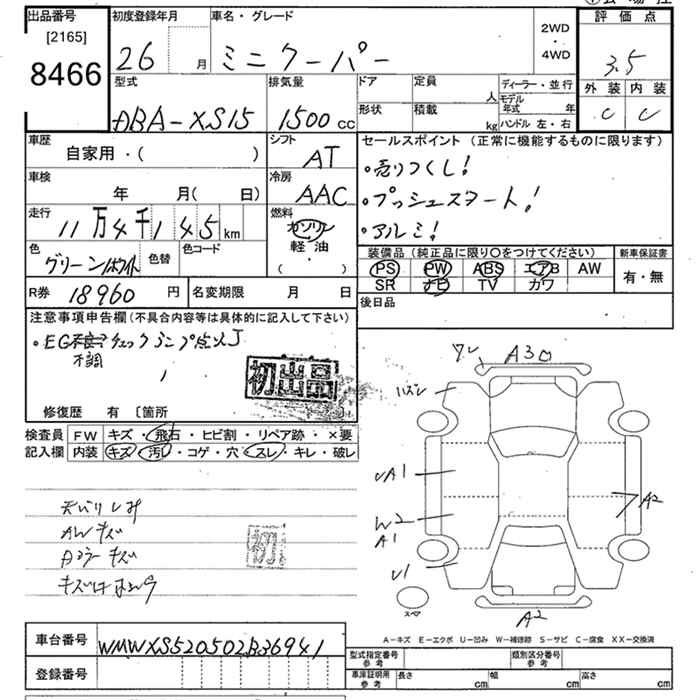 出品番号 初度登録年月 車名・グレード 評価点
[2165] 2WD
8466 26 月 ミニクーパー ・ 3.5
4WD
型式 排気量 ドア 定員 人 ディーラー・並行 外装 内装
DBA-XS15 1500 cc 形状 積載 kg モデル年式 年 C C
ハンドル 左・右
車歴 シフト セールスポイント (正常に機能するものに限ります)
自家用・( ) AT ・売りつくし!
車検 冷房 ・プッシュスタート!
年 月( 日) AAC ・アルミ!
走行 燃料
11万4千145km ガソリン
色 色替 色コード 軽・油 装備品 (純正品に限り○をつけてください) 新車保証書
グリーン/ホワイト ・( ) PS PW ABS エアB AW 有・無
SR ナビ TV カワ
R券 18960 円 名変期限 月 日 後日品
注意事項申告欄(不具合内容等は具体的に記入して下さい)
・EG チェックランプ点灯
不調
初出品
修復歴 有 〔箇所 〕
検査員 FW キズ・飛石・ヒビ割・リペア跡・×要
記入欄 内装 キズ・汚れ・コゲ・穴・スレ・キレ・破レ
ワレ A3
ハズレ
UA1
W2
A1
U1
A2
A2
天バリシミ
AWキズ
Aコラーキズ
スペア
A-キズ E-エクボ U-凹み W-補修跡 S-サビ C-腐食 XX-交換済
車台番号 WMWXS520502B36941
型式指定番号 参考 類別区分番号 参考
登録番号 車庫証明用 参考 長さ cm 幅 cm 高さ cm